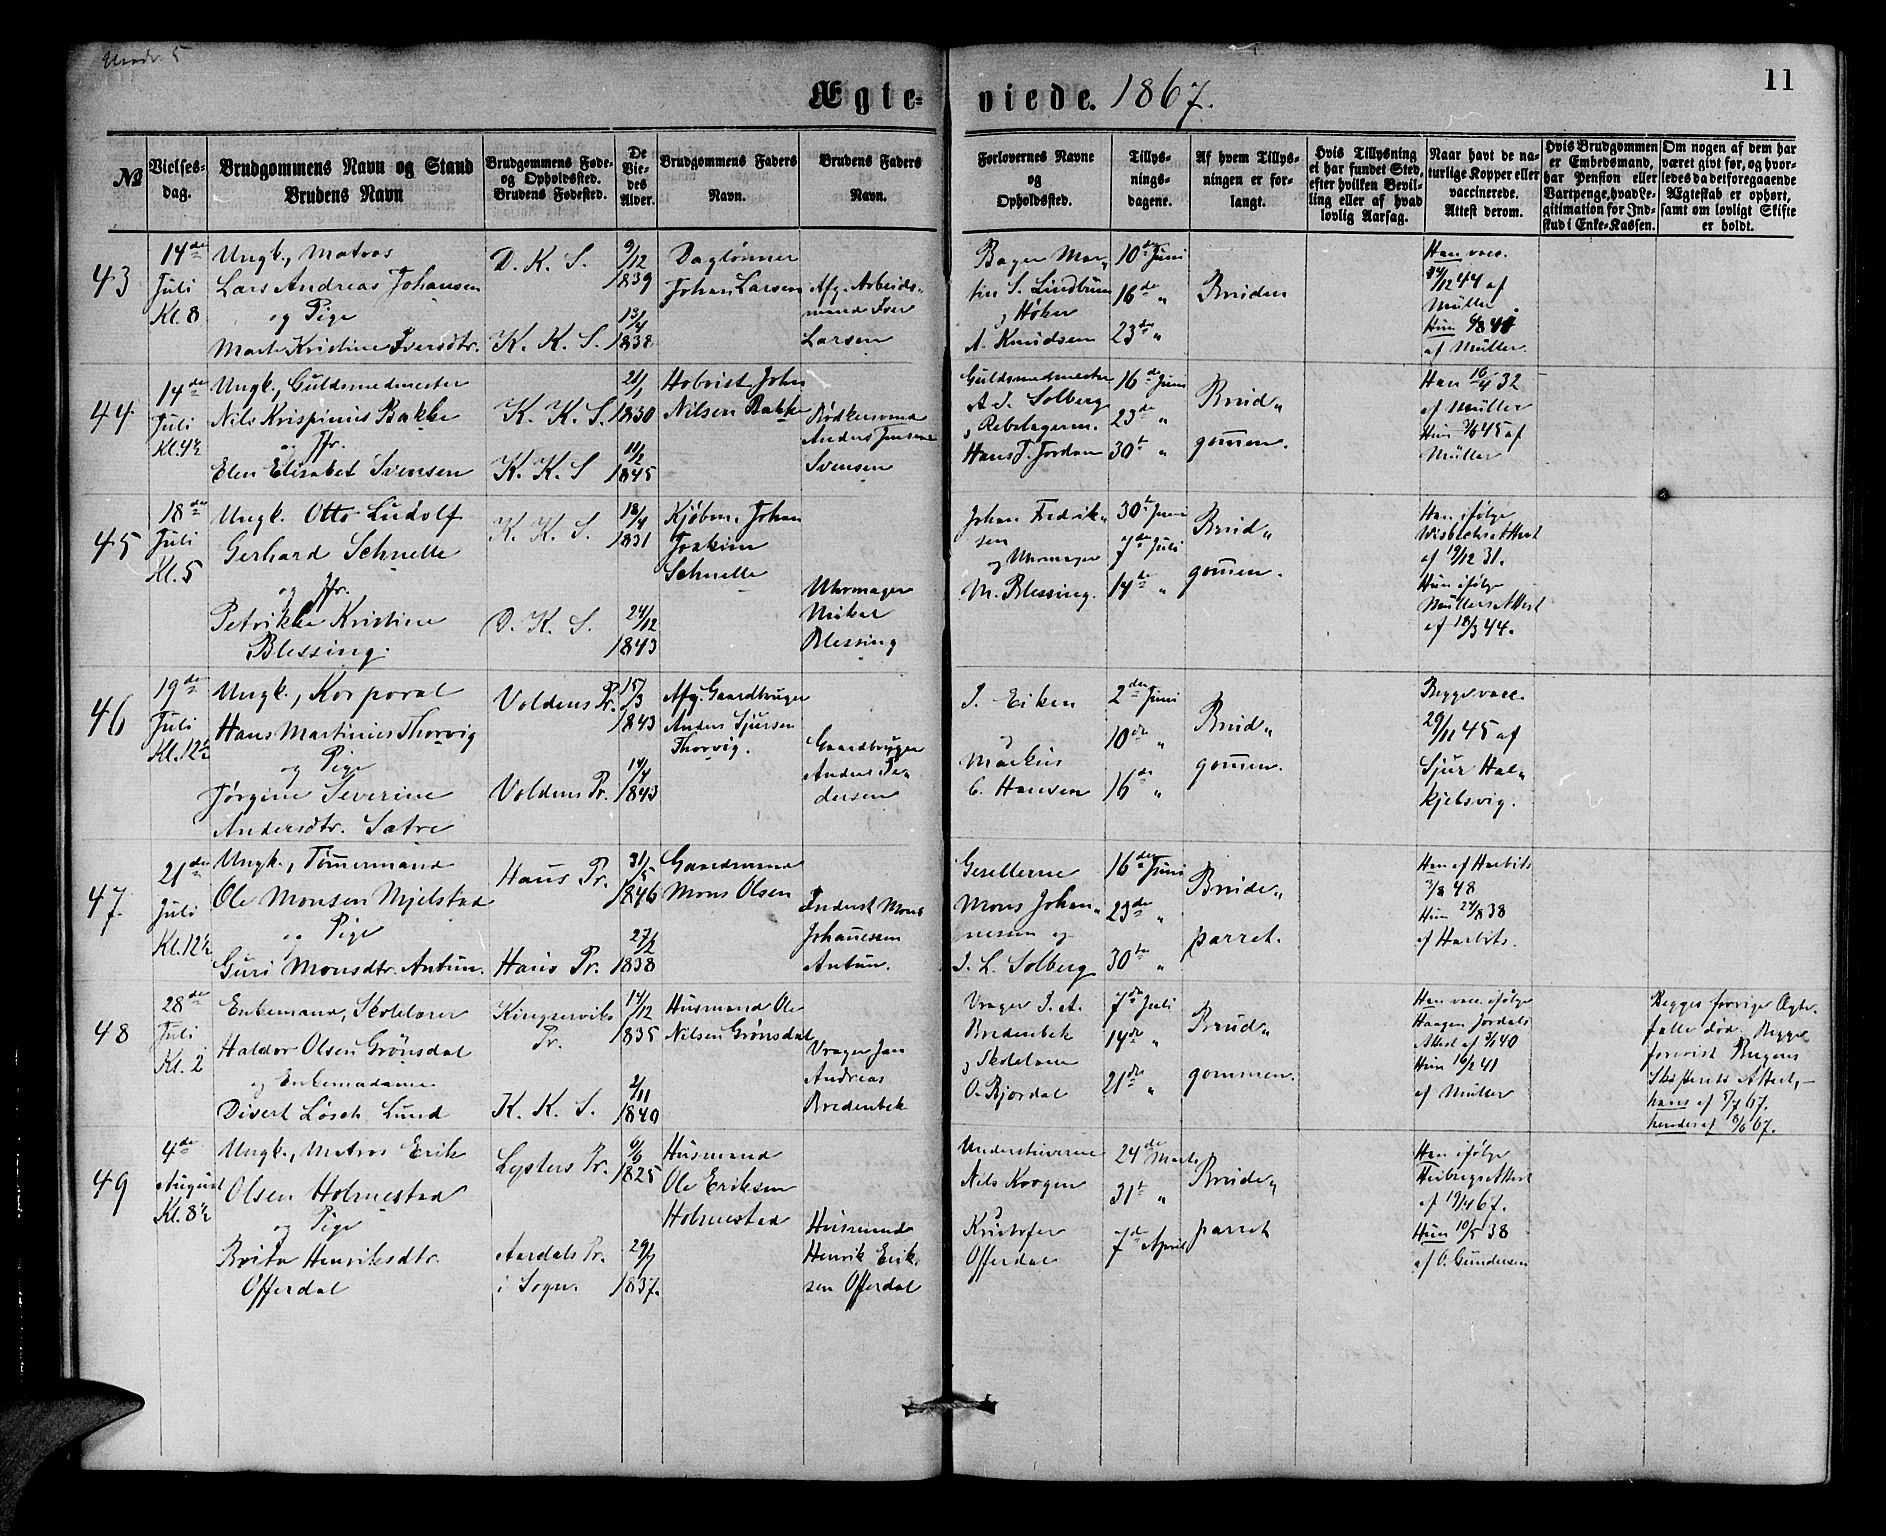 11
Ægte-
viede. 1867.
№
Vielses-
dag.
Brudgommens Navn og Stand
Brudens Navn
Brudgommens Føde-
og Opholdssted.
Brudens Fødested.
De
Vie-
des
Alder.
Brudgommens Faders
Navn.
Brudens Faders
Navn.
Forlovernes Navne
og
Opholdssted.
Tillys-
nings-
dagene.
Af hvem Tillys-
ningen er for-
langt.
Hvis Tillysning
ei har fundet Sted,
efter hvilken Bevil-
ling eller af hvad
lovlig Aarsag.
Naar havt de na-
turlige Kopper eller
vaccinerede.
Attest derom.
Hvis Brudgommen
er Embedsmand,
har Pension eller
Vartpenge, hvad Le-
gitimation for Ind-
skud i Enke-Kassen.
Om nogen af dem har
været givt før, og hvor-
ledes da det foregaaende
Ægteskab er ophørt,
samt om lovligt Skifte
er holdt.
43
14de
Juli
Kl. 8
Ungk., Matros
Lars Andreas Johansen
og Pige
Marte Kristine Iversdtr.
D. K. S.
K. K. S.
9/12
1839
13/4
1838
Daglønner
Johan Larsen
Afg. Arbeids-
mand Iver
Larsen
Bager Mar-
tin S. Lindbrun
og Høker
A. Knudsen
10de Juni
16de "
23de "
Bruden
Han vacc.
/12 44 af
Müller.
Hun
af Müller.
44
14de
Juli
Kl. 4½
Ungk., Guldsmedmester
Nils Krispinius Bakke
og Jfr.
Elen Elisabet Svensen
K. K. S.
K. K. S
21/1
1830
11/2
1845
John
Nilsen Bakke
Bødkersvend
Anders Jensen
Svensen
Guldsmedmester
A. I. Solberg
og Rebslagerm.
Hans J. Jordan
16de Juni
23de "
30te "
Brud"
gommen.
Han 16/4 32
af Müller
Hun 45 af
Müller
45
18de
Juli
Kl. 5
Ungk. Otto Ludolf
Gerhard Schnelle
og Jfr.
Petrikke Kristine
Blessing.
K. K. S.
D. K. S.
18/4
1831
24/12
1843
Kjøbm. Johan
Joakim
Schnelle
Uhrmager
Mikal
Blessing
Johan Fredrik"
sen
og Uhrmager
M. Blessing.
30te Juni
7de Juli
14de "
Brud"
gommen.
Han ifølge
Wisbechs Attest
af 19/12 31.
Hun ifølge
Müllers Attest
af 18/3 44.
46
19de
Juli
Kl. 12½
Ungk., Korporal
Hans Martinius Thorvig
og Pige
Jørgine Severine
Andersdtr. Sætre
Voldens Pr.
Voldens Pr.
15/3
1843
14/4
1843
Afg. Gaardbruger
Anders Sjursen
Thorvig.
Gaardbruger
Anders Pe-
dersen
I. Eiken
og
Markus
C. Hansen
2den Juni
10de "
16de "
Brud"
gommen.
Begge vacc.
29/11 45 af
Sjur Hal"
kjelsvig.
47
21de
Juli
Kl. 12½
Ungk., Tømmermand
Ole Monsen Mjelstad
og Pige
Guri Monsdtr. Antun.
Haus Pr.
Haus Pr.
31/5
1846
27/2
1838
Gaardmand
Mons Olsen
Inderst Mons
Johannesen
Antun.
Gesellerne
Mons Johan"
nessen og
I. L. Solberg
16de Juni
23de "
30te "
Brude"
parret.
Han af Harbits
3/8 48
Hun 24/8 38
af Harbits.
48
28de
Juli
Kl. 2
Enkemand, Skolelærer
Haldor Olsen Grønsdal
og Enkemadame
Divert Løsch Lund
Kingservik
Pr.
K. K. S.
14/12
1835
2/11
1840
Husmand Ole
Nilsen Grønsdal
Vrager Jan
Andreas
Bredenbek
Vrager I. A.
Bredenbek
og Skolelærer
O. Bjordal
7de Juli
14de "
21de "
Brud"
gommen.
Han vacc. ifølge
Haagen Jordals
Attest af 40
Hun 16/2 41
af Müller
Begges forrige Ægte-
fælle død. Begge
forevist Byens
Skifterets Attest,-
hans af 5/7 67.
hendes af 8/6 67.
49
4de
August
Kl. 8½
Ungk., Matros Erik
Olsen Holmestad
og Pige
Brita Henriksdtr.
Offerdal
Lysters Pr.
Aardals Pr.
i Sogn.
6/6
1825
29/7
1837.
Husmand
Ole Eriksen
Holmestad
Husmand
Henrik Erik-
sen Offerdal
Understuverne
Nils Korgen
og
Kristofer
Offerdal
24de Marts
31te "
7de April
Brude"
parret
Han ifølge
Heibergs Attest
af 19/4 67.
Hun 10/5 38
af O. Gundersen